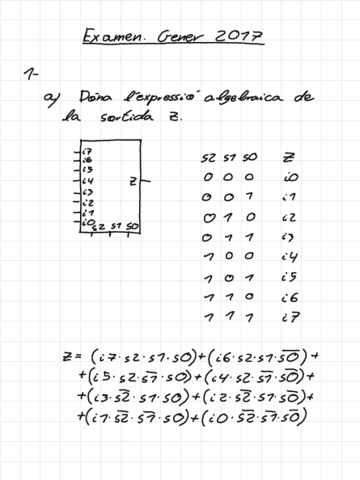 Examen. Gener 2017
1-
a) Dona l'expressió algebraica de
la sortida Z.
i7
i6
i5
i4 Z
i3
i2
i1
i0 s2 s1 s0
s2 s1 s0 Z
0 0 0 i0
0 0 1 i1
0 1 0 i2
0 1 1 i3
1 0 0 i4
1 0 1 i5
1 1 0 i6
1 1 1 i7
Z = (i7·s2·s1·s0)+(i6·s2·s1·s̅0̅)+
+(i5·s2·s̅1̅·s0)+(i4·s2·s̅1̅·s̅0̅)+
+(i3·s̅2̅·s1·s0)+(i2·s̅2̅·s1·s̅0̅)+
+(i1·s̅2̅·s̅1̅·s0)+(i0·s̅2̅·s̅1̅·s̅0̅)